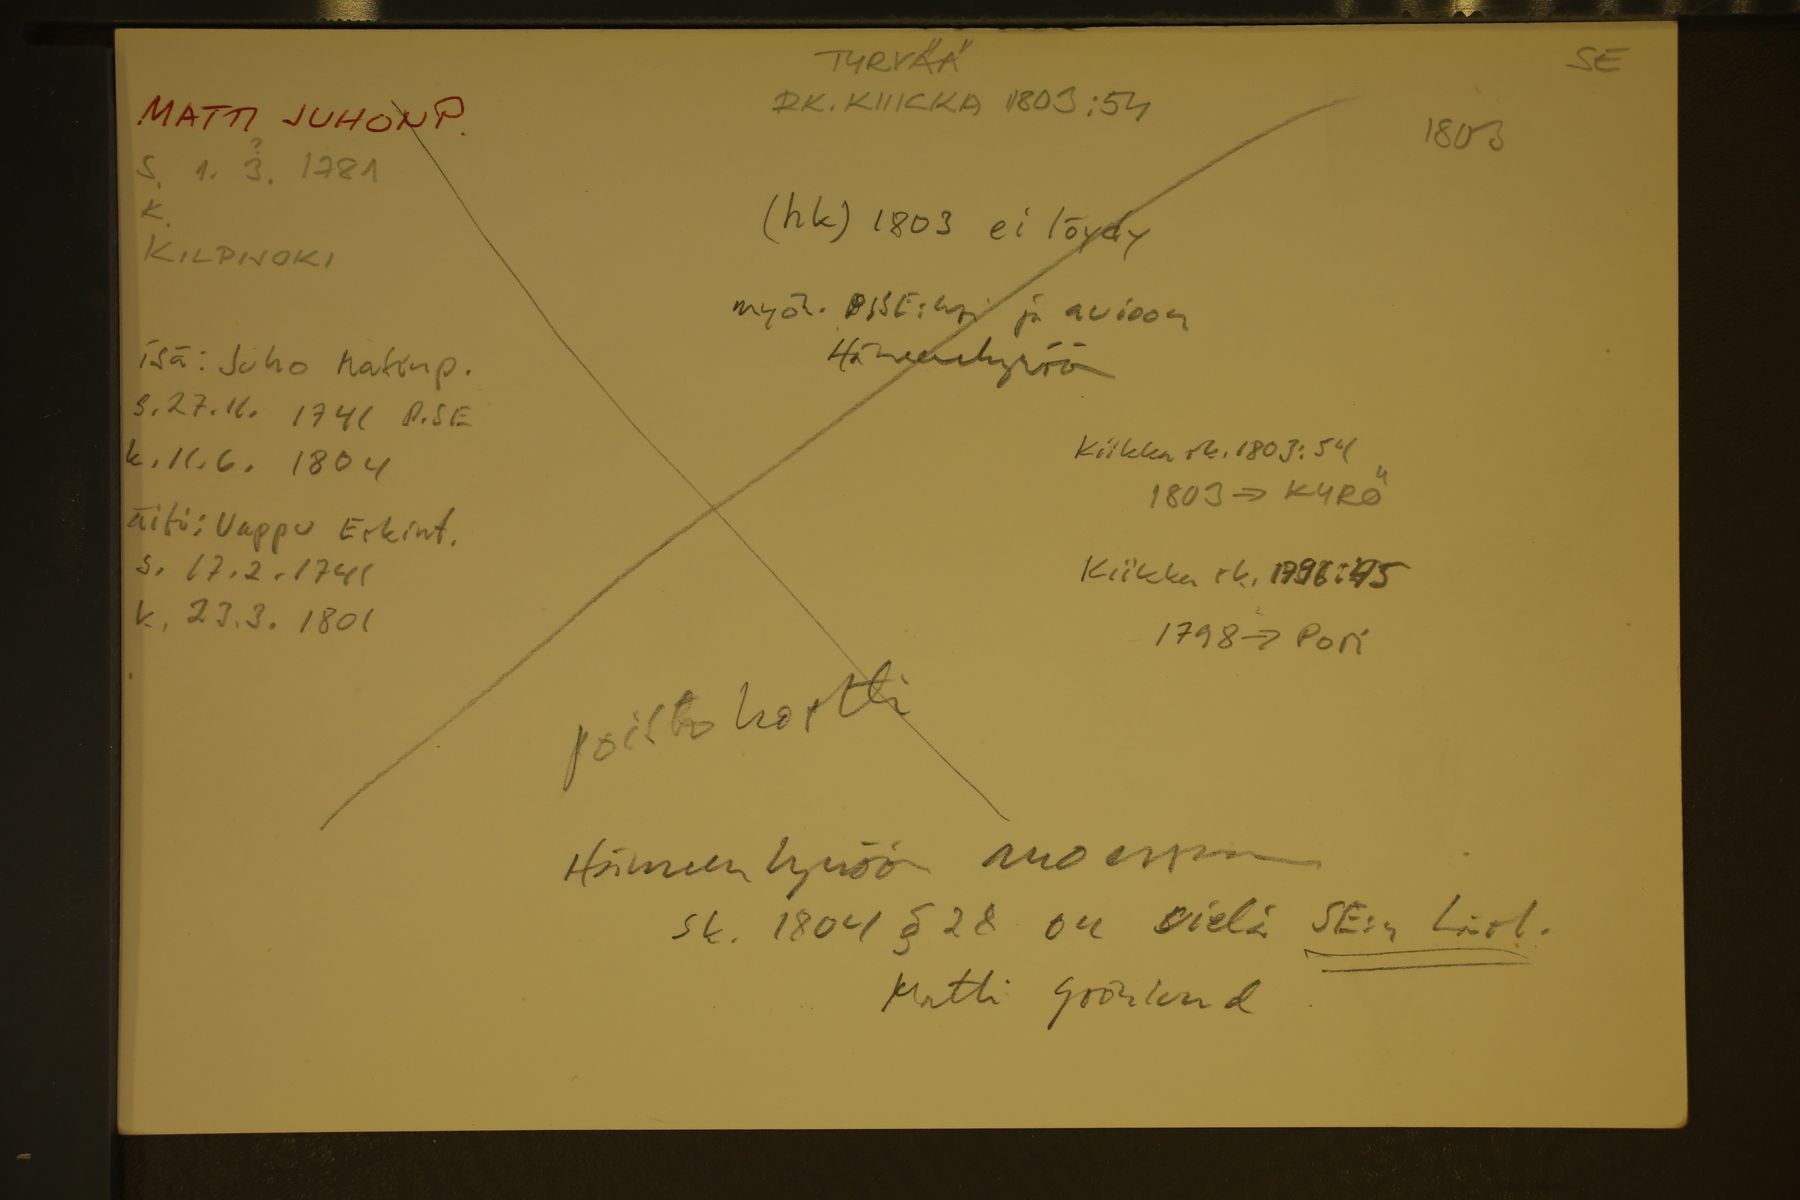 TYRVÄÄ
SE
RK. KIIKKA 1803:54
1803
MATTI JUHONP.
?
S. 1. 3. 1781
K.
KILPIJOKI
(hk) 1803 ei löydy
myöh. ja avioon
Hämeenkyröön
isä: Juho Matinp.
s. 27.11. 1741 P.SE
k. 11.6. 1804
äiti: Vappu Erkint.
s. 17.2.1741
k. 23.3. 1801
Kiikka rk. 1803:54
1803 → KYRÖ
Kiikka rk. 1796:45
1798 → Pori
poistokortti
Hämeenkyröön
sk. 1804 § 28 on vielä SE:n
Matti Grönlund